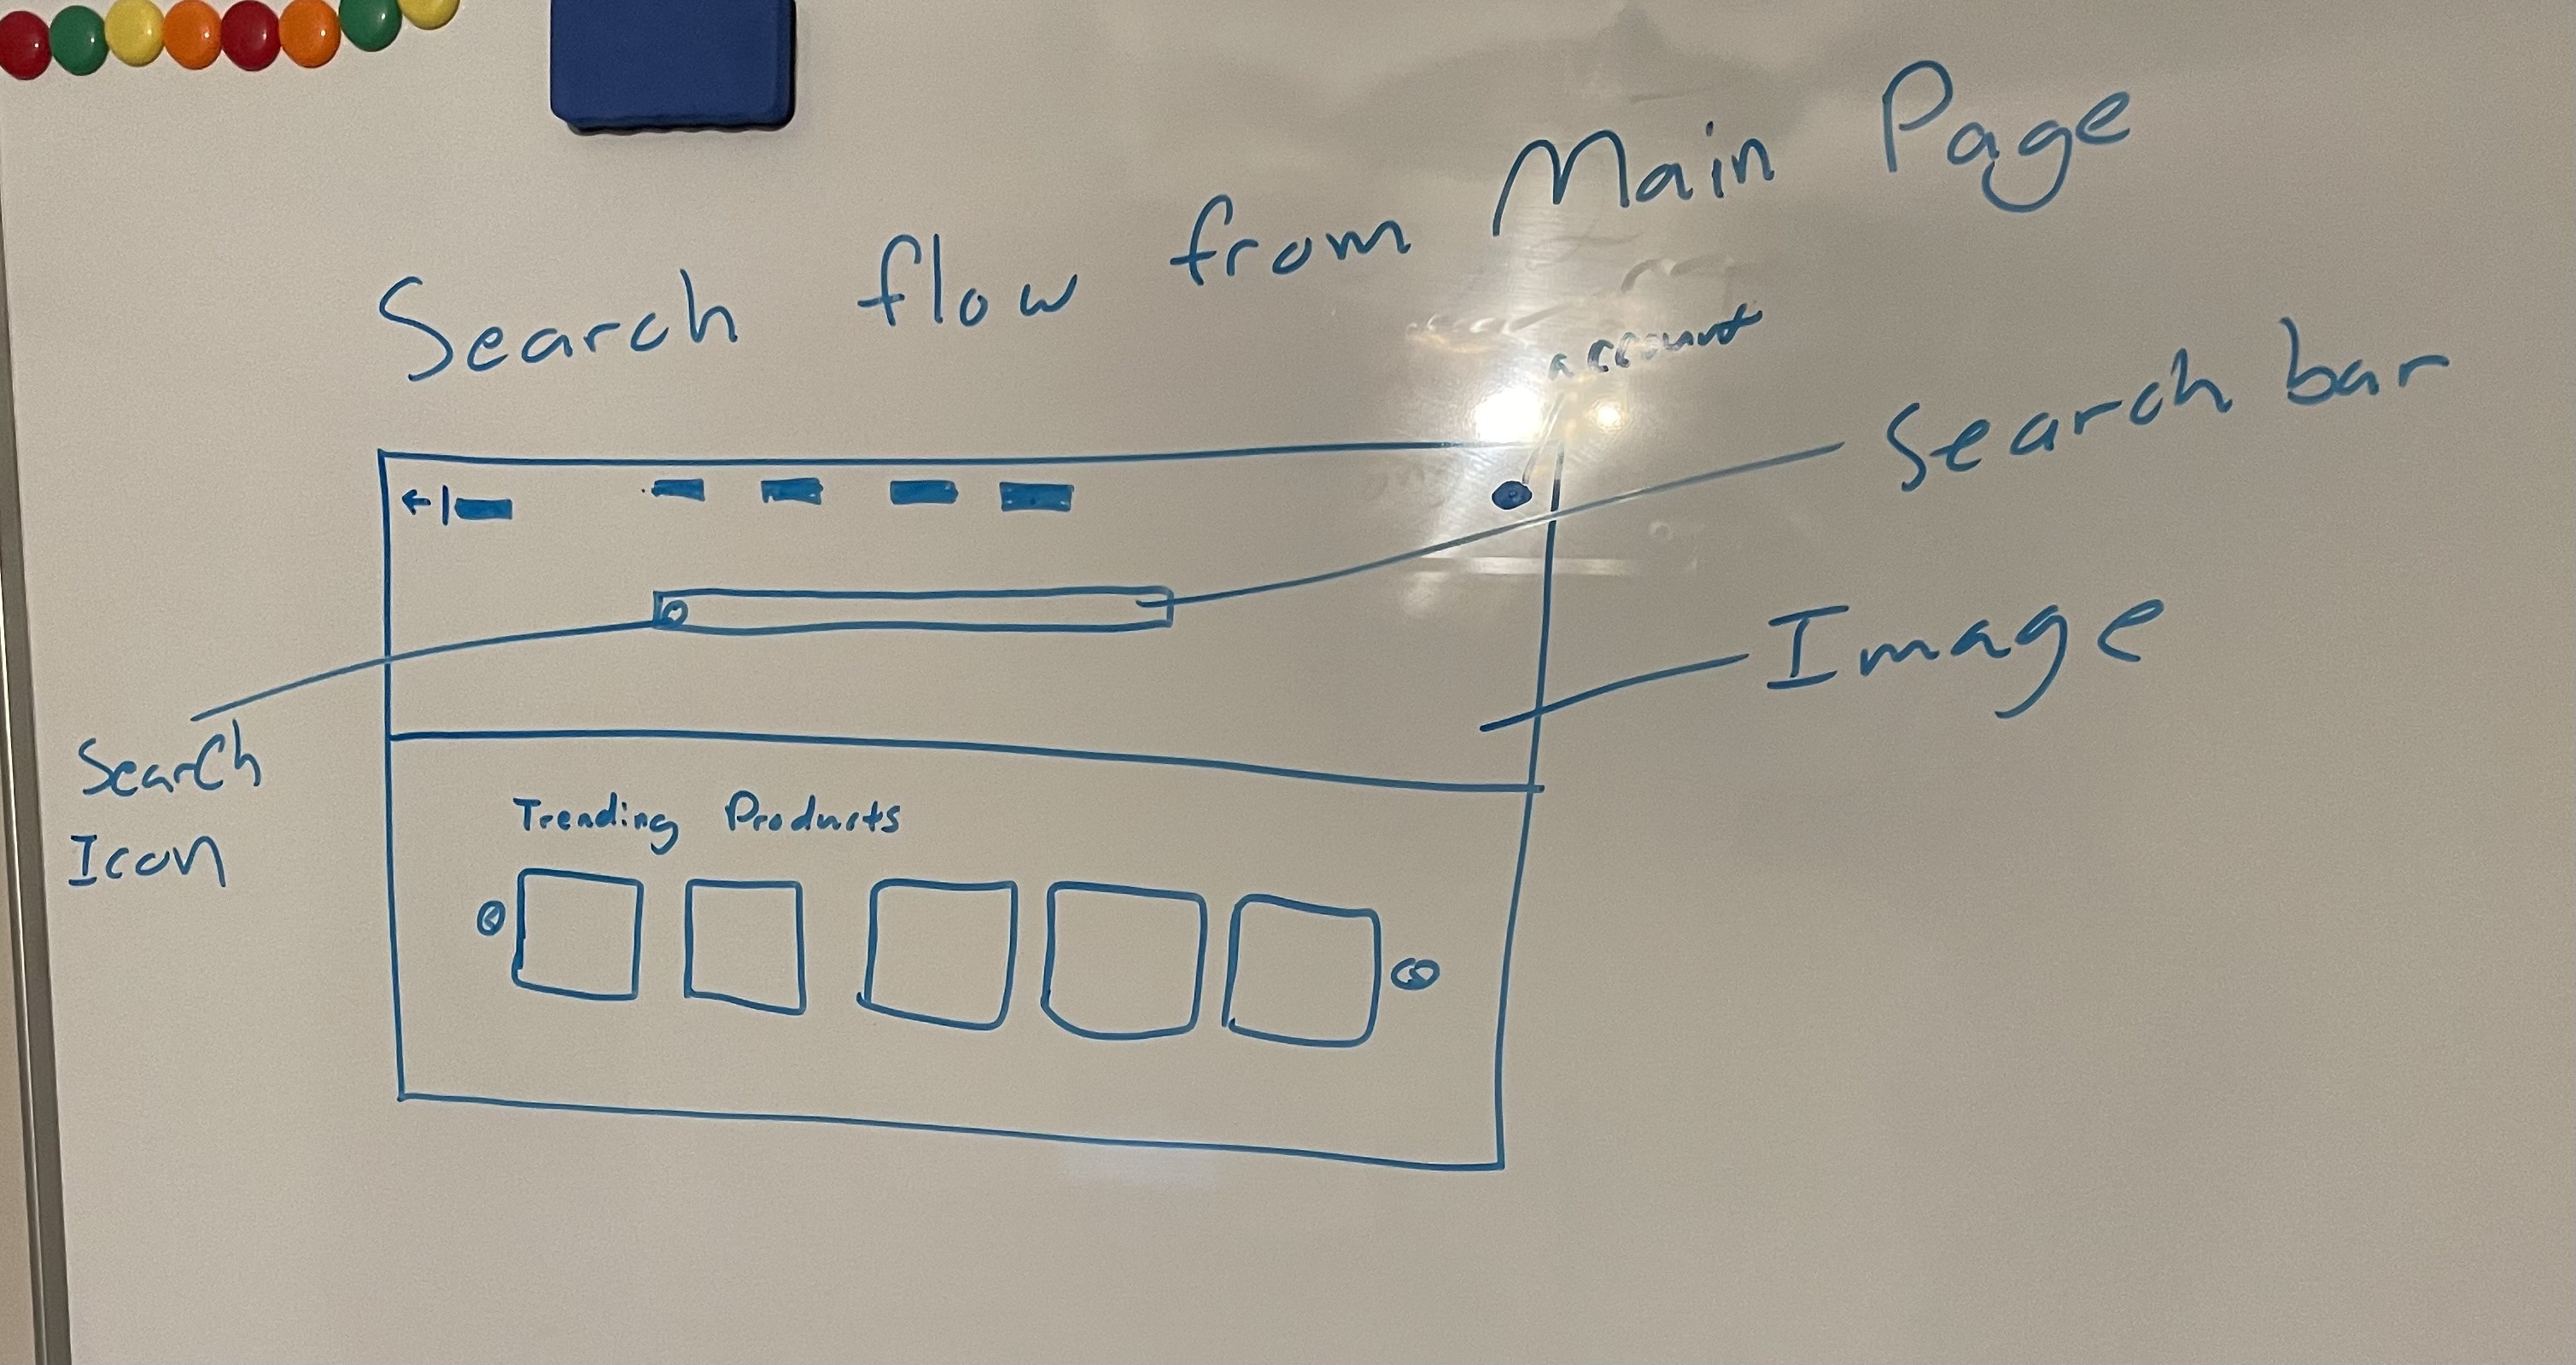 Search flow from Main Page
account
Search bar
Image
Search
Icon
Trending Products